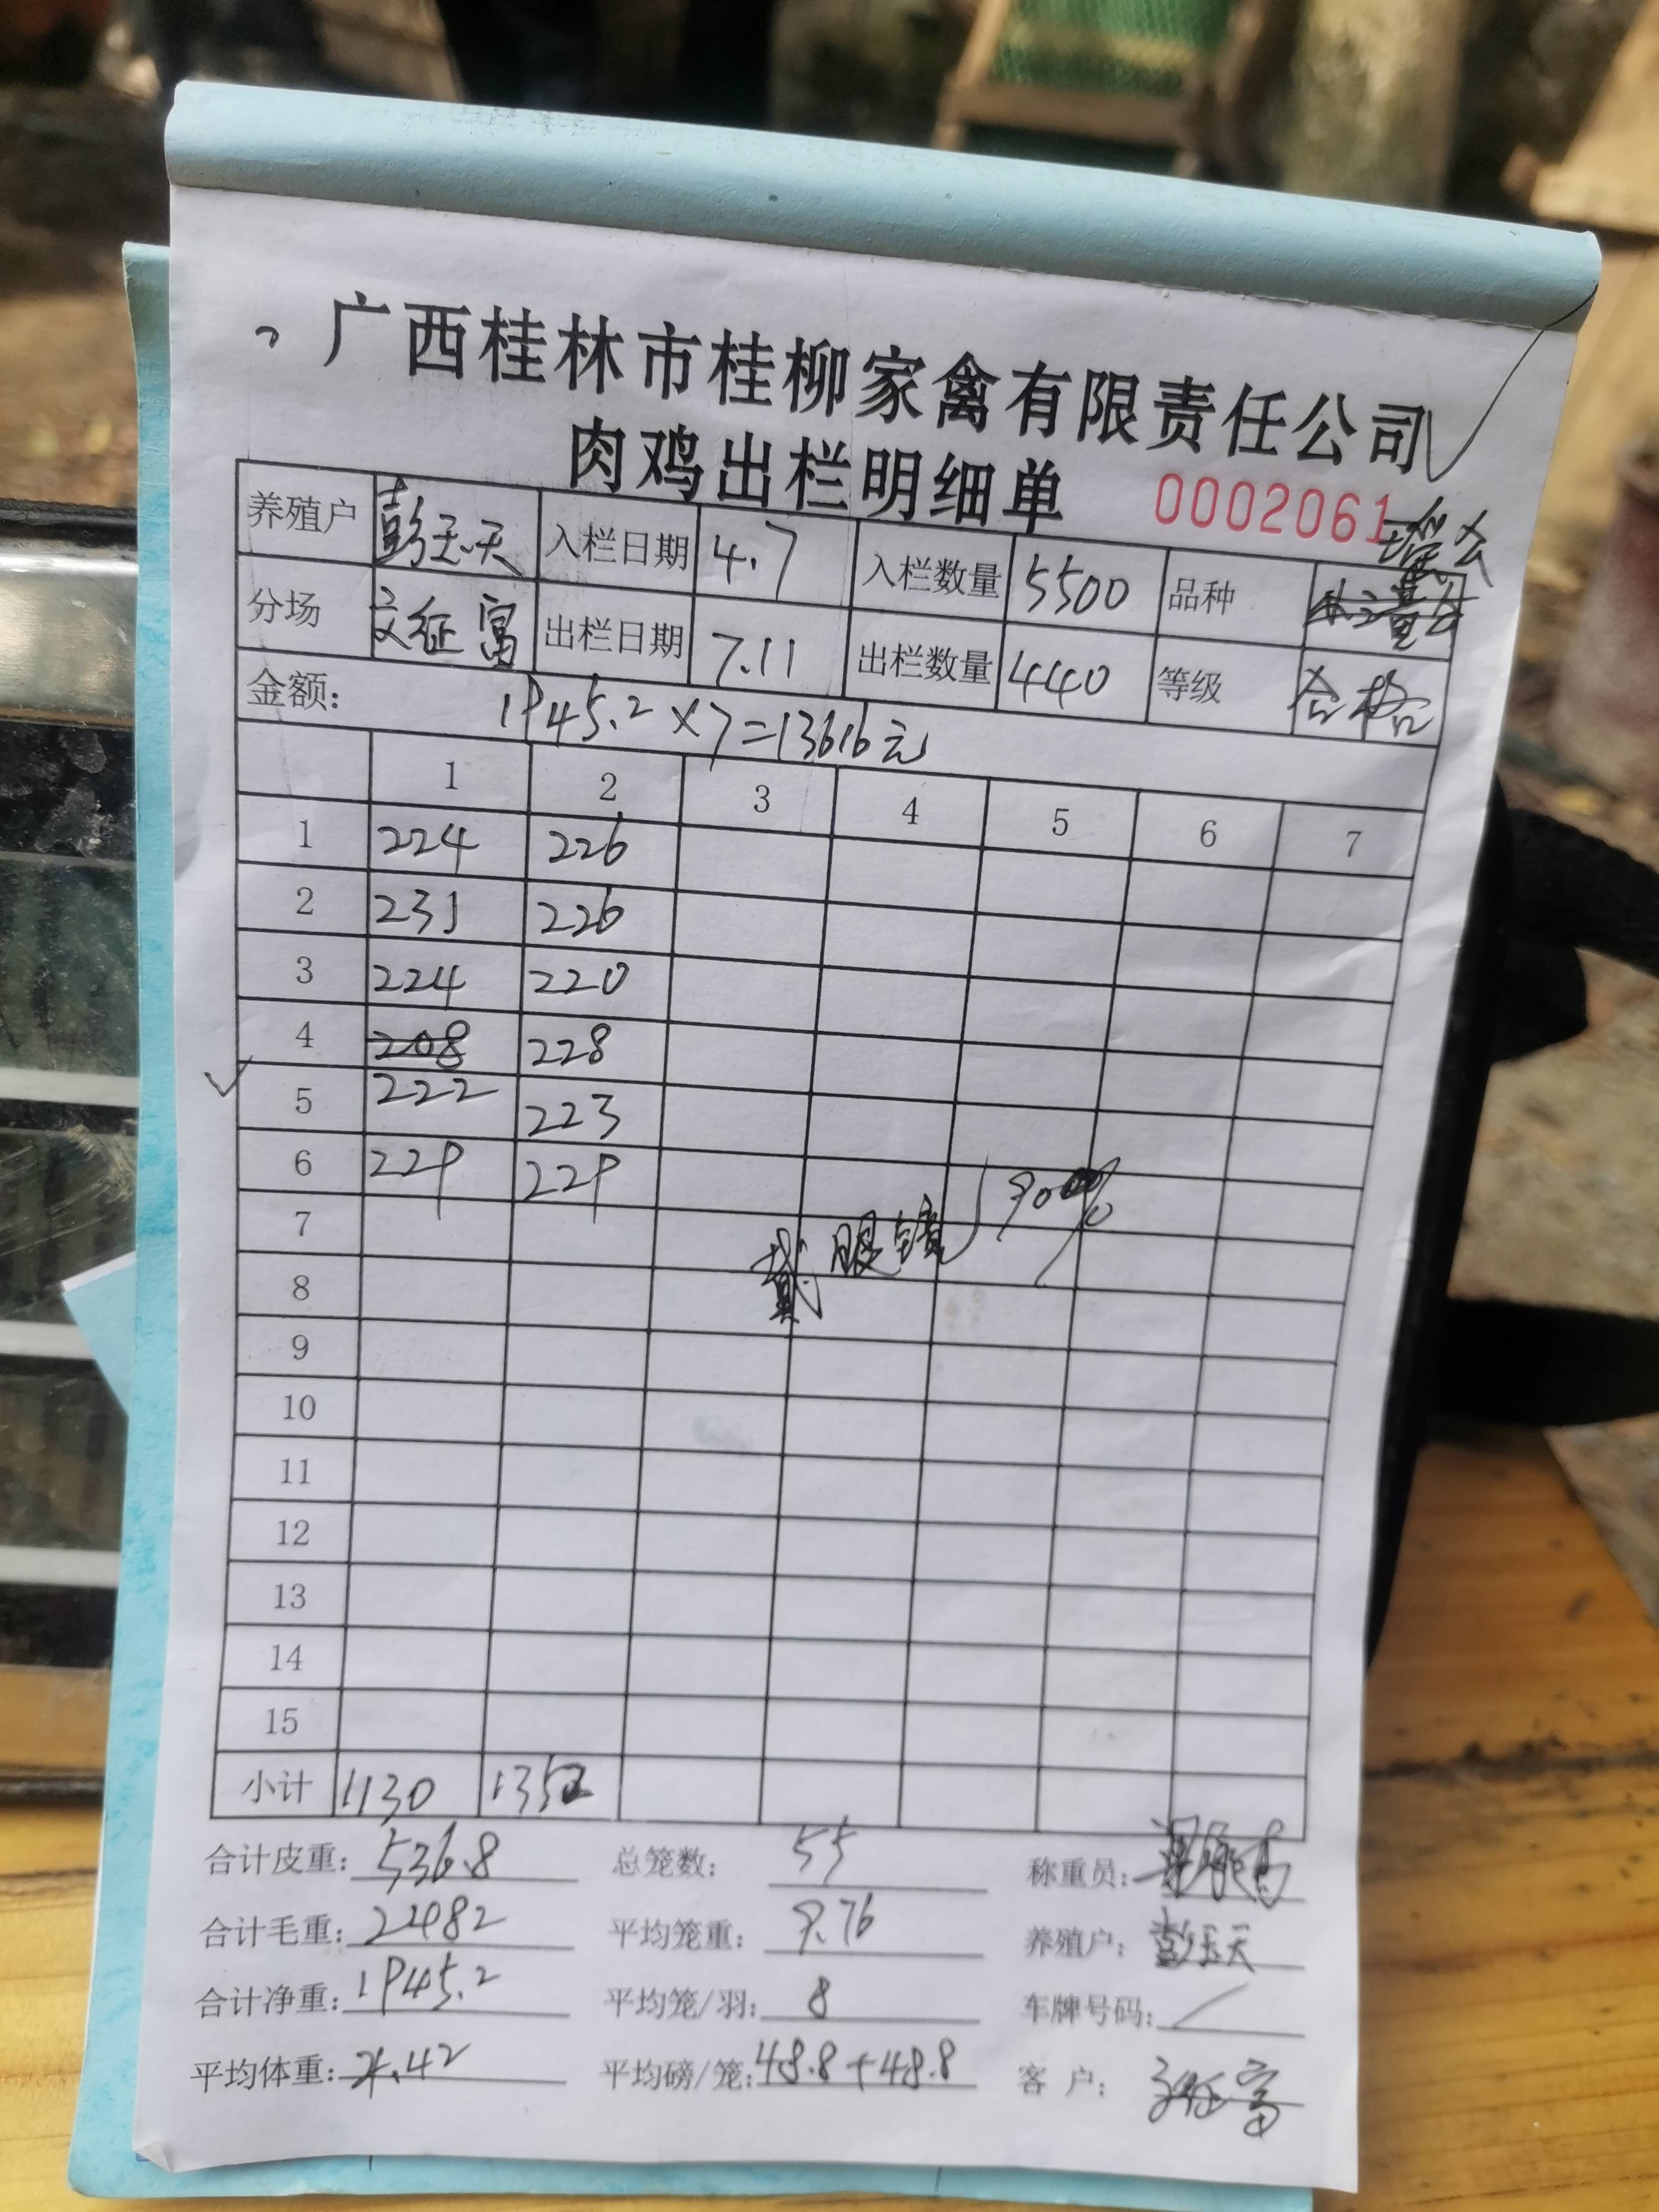 广西桂林市桂柳家禽有限责任公司
肉鸡出栏明细单 0002061
养殖户 彭玉天 入栏日期 4.7 入栏数量 5500 品种
分场 文征富 出栏日期 7.11 出栏数量 440 等级 合格
金额: 1945.2×7=13616元
1 2 3 4 5 6 7
1 224 226
2 231 226
3 224 220
4 208 228
5 222 223
6 229 229
7
戴眼镜 90%
8
9
10
11
12
13
14
15
小计 1130 1352
合计皮重: 536.8 总笼数: 55 称重员:
合计毛重: 2482 平均笼重: 9.76 养殖户: 彭玉天
合计净重: 1945.2 平均笼/羽: 8 车牌号码: /
平均体重: 4.42 平均磅/笼: 48.8+48.8 客 户: 文征富